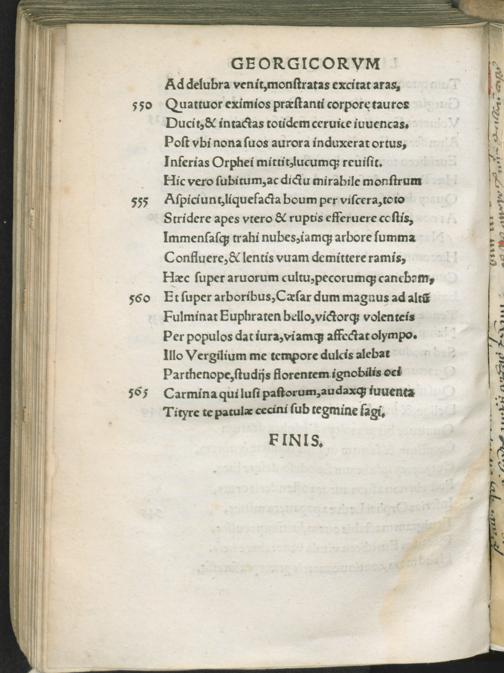 GEORGICORVM
Ad delubra venit, monſtratas excitat aras,
550 Quattuor eximios præſtanti corpore tauros
Ducit, & intactas totidem ceruice iuuencas.
Poſt vbi nona ſuos aurora induxerat ortus,
Inferias Orphei mittit, lucumq; reuiſit.
Hic vero ſubitum, ac dictu mirabile monſtrum
555 Aſpiciunt, liquefacta boum per viſcera, toto
Stridere apes vtero & ruptis efferuere coſtis,
Immenſasq; trahi nubes, iamq; arbore ſumma
Confluere, & lentis vuam demittere ramis,
Hæc ſuper aruorum cultu, pecorumq; canebam,
560 Et ſuper arboribus, Cæſar dum magnus ad altũ
Fulminat Euphraten bello, victorq; volenteis
Per populos dat iura, viamq; affectat olympo.
Illo Vergilium me tempore dulcis alebat
Parthenope, ſtudijs florentem ignobilis oci
565 Carmina qui luſi paſtorum, audaxq; iuuenta
Tityre te patulæ cecini ſub tegmine fagi.
FINIS.